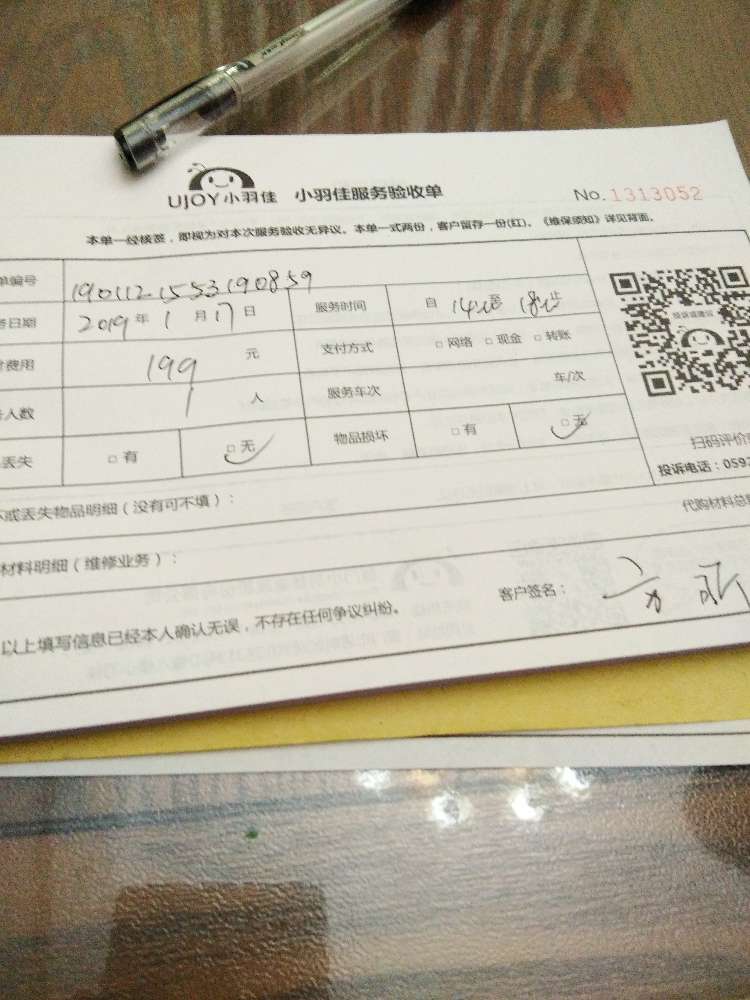 UJOY小羽佳 小羽佳服务验收单 No.1313052
本单一经核签，即视为对本次服务验收无异议。本单一式两份，客户留存一份(红)。《维保须知》详见背面。
单编号 1901121553190859
日期 2019年1月17日 服务时间 自 14:00至 18:00止
费用 199 元 支付方式 □网络 □现金 □转账
人数 1 人 服务车次 车/次
丢失 □有 □无 物品损坏 □有 □无
投诉或建议
扫码评价
投诉电话：059
或丢失物品明细（没有可不填）：
代购材料总
材料明细（维修业务）：
以上填写信息已经本人确认无误，不存在任何争议纠纷。 客户签名：